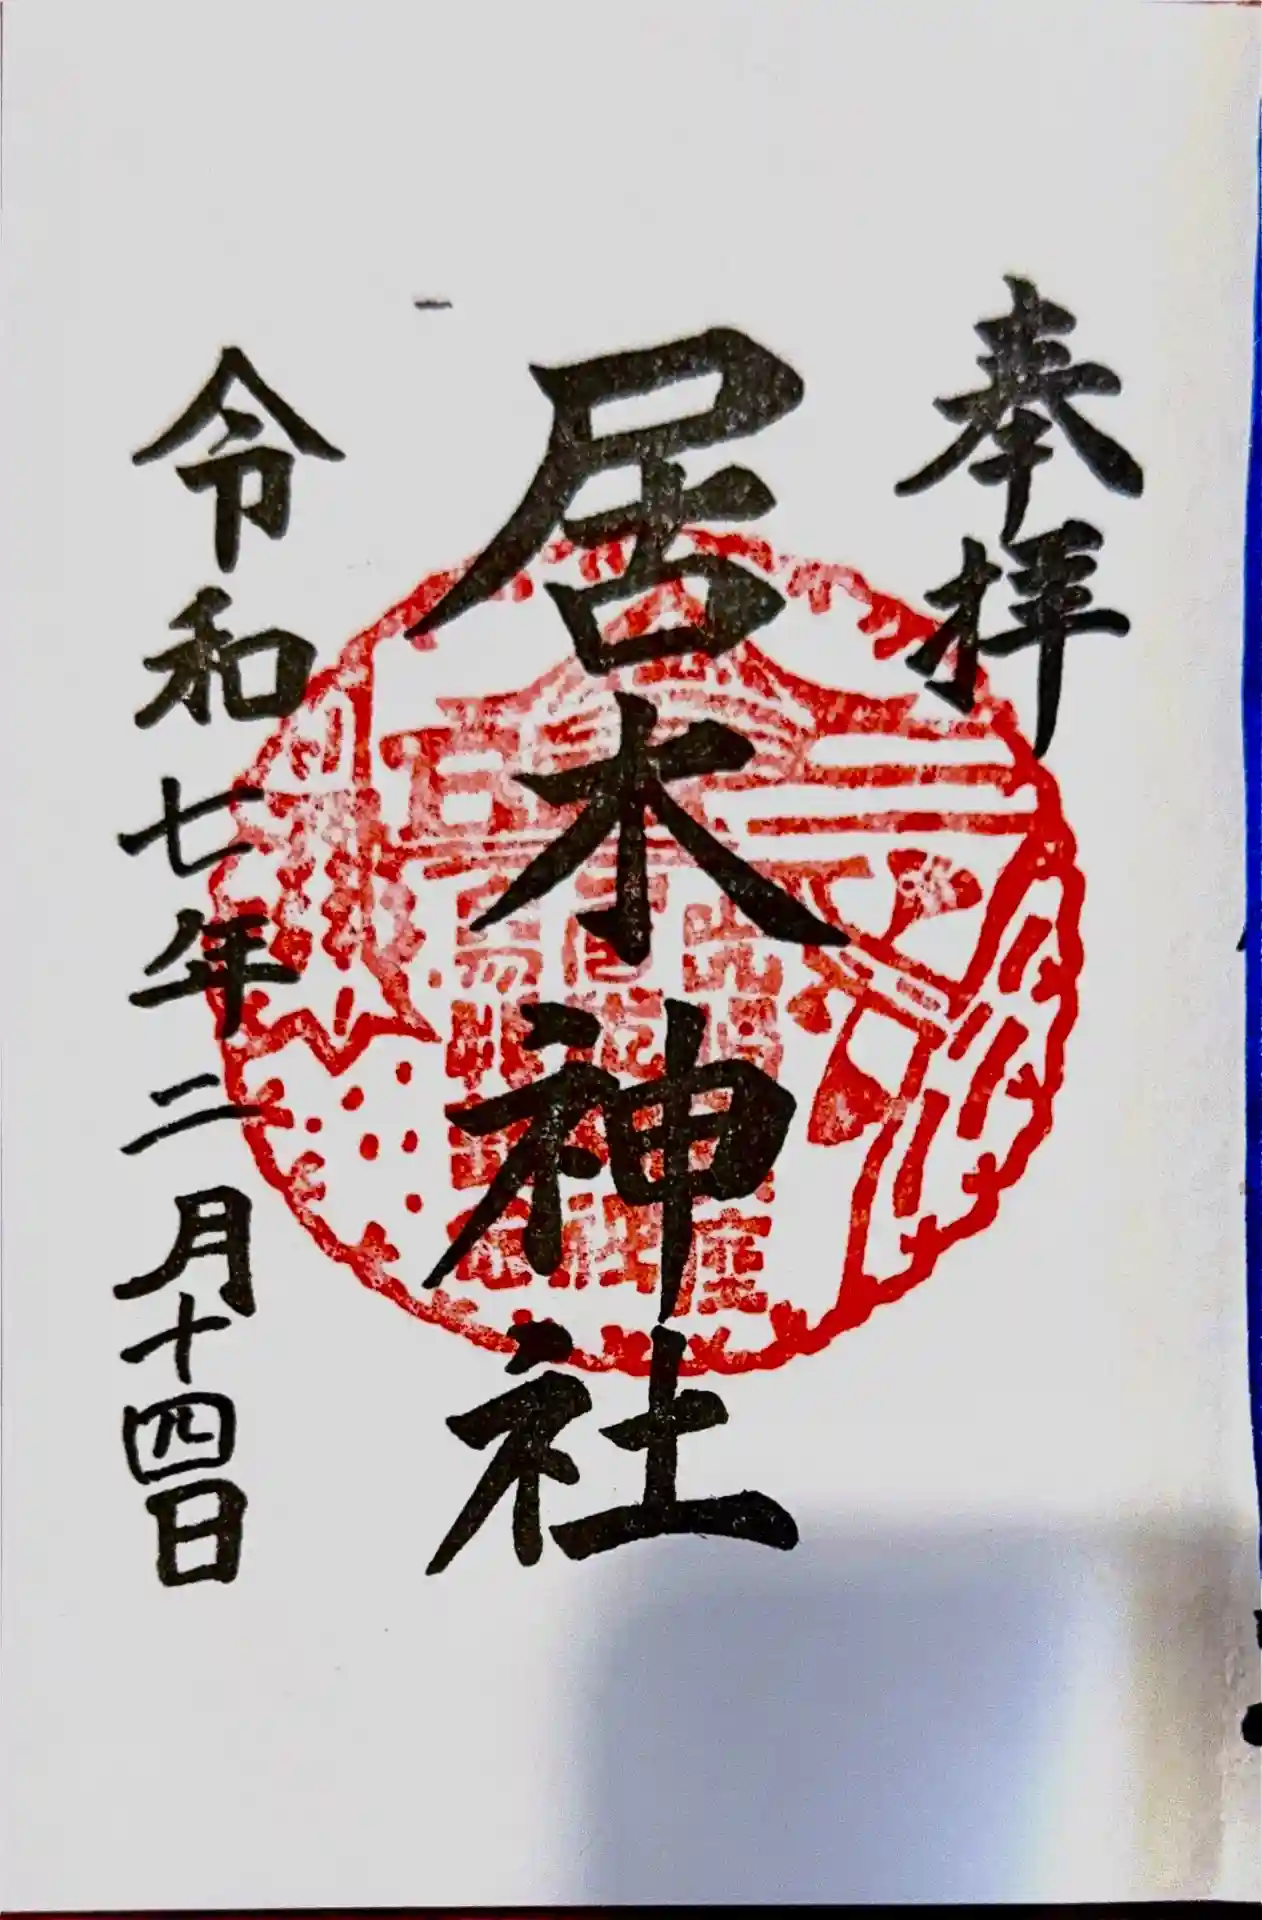 奉拝
居木神社
令和七年二月十四日